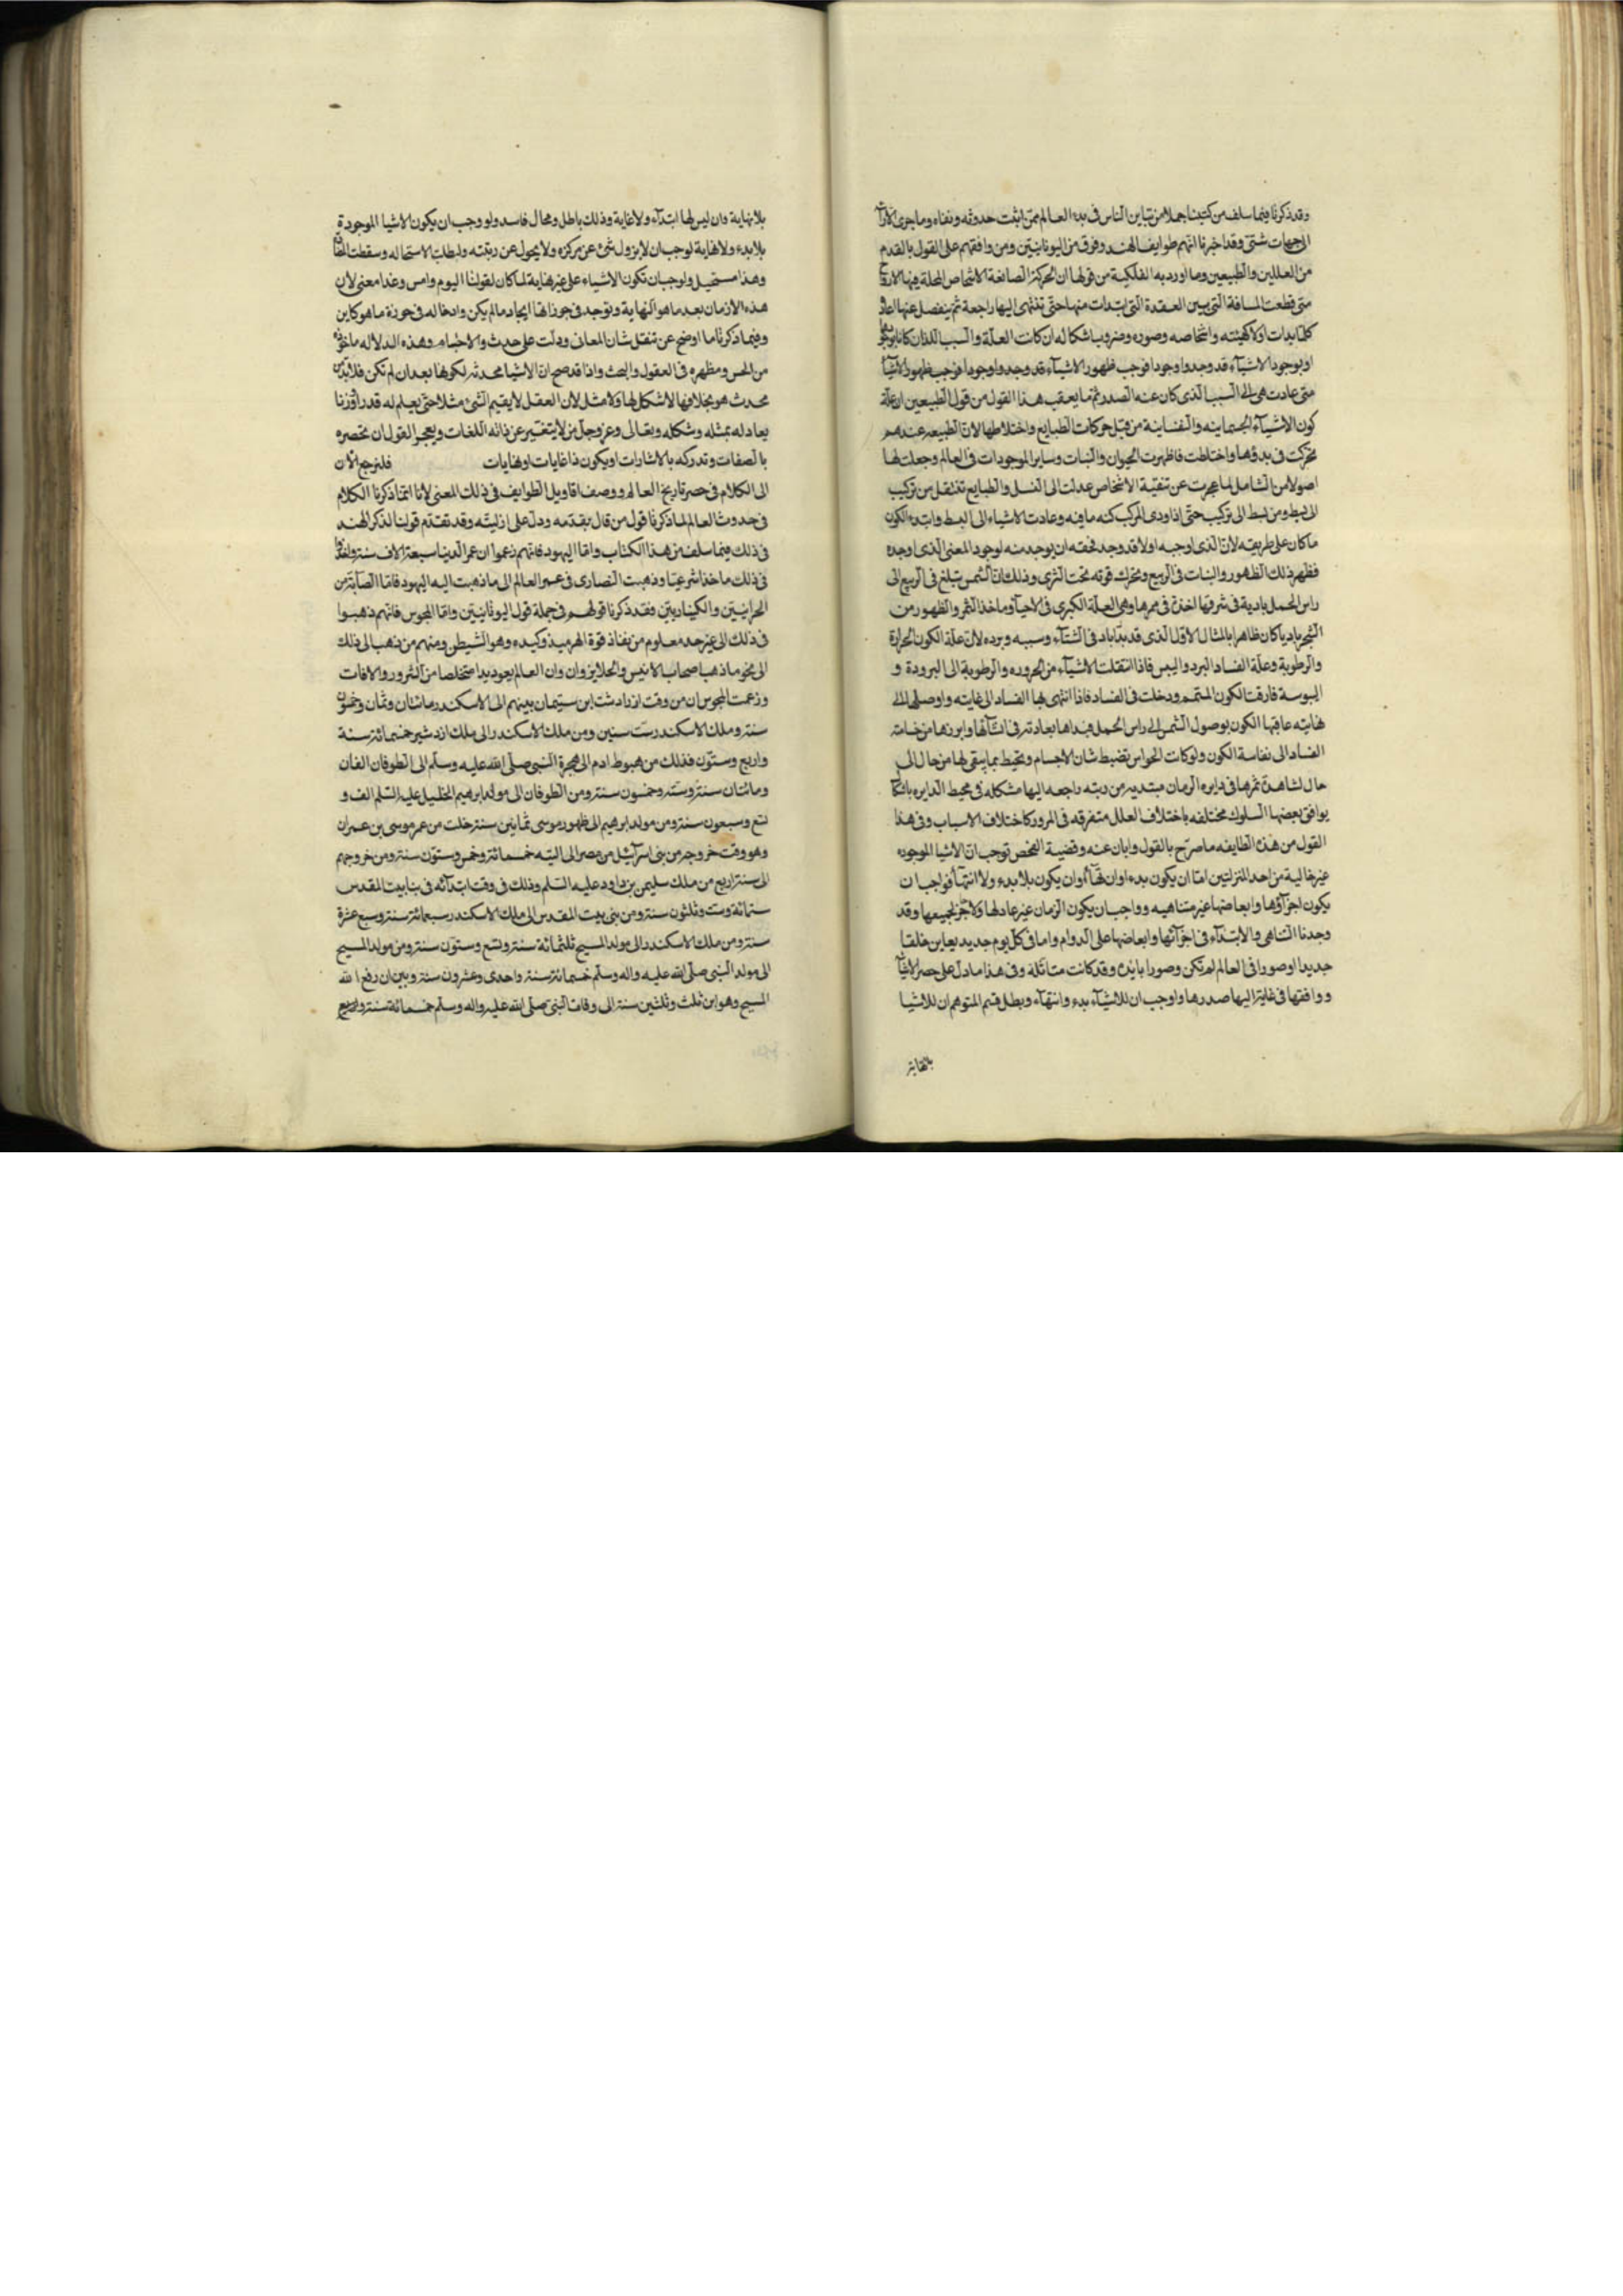 وقد ذكرنا فيما سلف من كتبنا جملا من تباين الناس في بدء العالم ممن اثبت حدوثه ونفاه وما جرى
الى جهات شتى وقد اخبرنا انهم طوايف الهند وفرق من اليونانيين ومن وافقهم على القول بالقدم
من الفلكيين والطبيعيين وما اورد به الفلكية من قولها ان الحركة الصانعة الاشخاص المحلة فيها الارواح
متى قطعت المسافة التى بين العقدة التى ابتدات منها حتى تنتهى اليها راجعة ثم ينفصل عنها اعاد
كلما بدات اولا كهيئته واشخاصه وصوره وضروب اشكاله ان كانت العلة والسبب اللذان كانا
او بوجود الاشياء قد وجدوا وجودا فوجب ظهور الاشياء قد وجدوا وجودا فوجب ظهور الاشيا
متى عادت هى الى السبب الذى كان عنه الصدر ثم ما يعقب هذا القول من قول الطبيعين ان علة
كون الاشياء الجسمانيه والنفسانية من قبل حركات الطبايع واختلاطها لان الطبيعه عندهم
تحركت فى بدوها واختلطت فاظهرت الحيوان والنبات وساير الموجودات فى العالم وجعلت لها
اصولا من التناسل لما عجزت عن تبقية الاشخاص عدلت الى النسل والطبايع تنتقل من تركيب
الى بسط ومن بسط الى تركيب حتى اذا ودى المركب كنه ما فيه وعادت الاشياء الى البسط وابتدء الكون
ما كان على طريقه لان الذى اوجبه اولا قد وجد فحقه ان يوجد منه لوجود المعنى الذى اوجده
فظهر ذلك الظهور والنبات فى الربيع وتحرك قوته تحت الثرى وذلك ان الشمس تبلغ فى الربيع الى
راس الحمل بادية فى شرفها اخذة فى ممرها وهى العلة الكبرى فى الاحيا وماخذ الثمر والظهور من
الشجر باديا كان ظاهرا بالمثال الاول الذى قد بدا باد فى الشتاء وسببه وبرده لان علة الكون الحرارة
والرطوبة وعلة الفساد البرد واليبس فاذا انتقلت الاشياء من الحروره والرطوبة الى البرودة و
اليبوسة فارقت الكون المتمم ودخلت فى الفساد فاذا انتهى بها الفساد الى غايته واوصلها الى
نهايته عاقبها الكون بوصول الشمس الى راس الحمل فبداها بعادته فى انشائها وابرزها من خساسة
الفساد الى نفاسة الكون ولو كات الحواس تضبط شان الاجسام وتحيط بما يتقى لها من حال الى
حال لشاهدت ثمرها فى دايره الزمان مبتديه من ربته راجعه اليها مشكله فى محيط الدايره باشكال
يوافق بعضها السلوك مختلفه باختلاف العلل متفرقه فى المرور كاختلاف الاسباب وفى هذا
القول من هذه الطايفه ما صرح بالقول وابان عنه وقضية الفحص توجب ان الاشيا الموجوده
غير خالية من احد المنزلتين اما ان يكون بدء وانتهاء وان يكون بلا بدء ولا انتهاء فواجب ان
يكون اجزاؤها وابعاضها غير متناهيه وواجب ان يكون الزمان غير عاد لها ولا جز لجميعها وقد
وجدنا التناهى والابتداء فى اجزائها وابعاضها على الدوام واما فى كل يوم جديد يعاين خلقا
جديدا وصورا فى العالم لم تكن وصورا بايده وقد كانت متاثلة وفى هذا ما دل على حصر الاشيا
ووافقها فى غاية اليها صدرها واوجب ان للاشياء بدء وانتهاء وبطل قيم المتوهم ان للاشيا
بلا نهاية
بلا نهاية وان ليس لها ابتداء ولا غاية وذلك باطل ومحال فاسد ولو وجب ان يكون الاشيا الموجودة
بلا بدء ولا نهاية لوجب ان لا يزول شئ عن مركزه ولا يحول عن ربتته ولبطلت الاستحاله وسقطت
وهذا مستحيل ولوجب ان تكون الاشياء على غير نهاية لما كان لقولنا اليوم وامس وغدا معنى لان
هذه الازمان بعد ما هو النهاية وتوجد فى حوزاتها ايجاد ما لم يكن وادخاله فى حوزة ما هو كاين
وفيما ذكرنا ما اوضح عن تنقل شان المعانى ودلت على حدث والاجسام وهذه الدلاله ماخوذة
من الحس ومظهره فى العقول والبحث واذا قد صح ان الاشيا محدثه لكونها بعد ان لم تكن فلا بد من
محدث هو بخلافها لا شكل لها ولا مثل لان العقل لا يقيم الشئ مثلا حتى يعلم له قدرا ووزنا
يعادله بمثله وشكله وتعالى وعز وجل من لا يتغير عن ذاته اللغات ويعجز القول ان تحصره
بالصفات وتدركه بالاشارات او يكون ذا غايات او نهايات فلنرجع الان
الى الكلام فى حصر تاريخ العالم ووصف اقاويل الطوايف فى ذلك المعنى لانا انما ذكرنا الكلام
فى حدوث العالم لما ذكرنا قول من قال بقدمه ودل على ازليته وقد تقدم قولنا لذكر الهند
فى ذلك فيما سلف من هذا الكتاب واما اليهود فانهم زعموا ان عمر الدنيا سبعة الاف سنة
فى ذلك ماخذا شرعيا وذهبت النصارى فى عمر العالم الى ما ذهبت اليه اليهود فاما الصابئة من
الحرانيين والكيماريين فقد ذكرنا قولهم فى جملة قول اليونانيين واما المجوس فانهم ذهبوا
فى ذلك الى غير حد معلوم من نفاذ قوة الهرميد وكيده وهو الشيطن ومنهم من ذهب الى ذلك
الى نحو ما ذهب اصحاب الاثنين والجلا وان وان العالم يعود بدا متخلصا من الشرور والافات
وزعمت المجوس ان من وقت زرادشت ابن سبتيمان بينهم الى الاسكندر مائتان وثمان وخمسون
سنة وملك الاسكندر ست سنين ومن ملك الاسكندر الى ملك ازدشير خمسمائة سنة
واربع وستون فذلك من هبوط ادم الى هجرة النبى صلى الله عليه وسلم الى الطوفان الفان
ومائتان سنة وستة وخمسون سنة ومن الطوفان الى مولد ابرهيم الخليل عليه السلم الف و
تسع وسبعون سنة ومن مولد ابرهيم الى ظهور موسى ثمانين سنة خلت من عمر موسى بن عمران
وهو وقت خروجه من بنى اسرآئيل من مصر الى التيه خمسمائة وخمس وستون سنة ومن خروجهم
الى سنة اربع من ملك سليمن بن داود عليه السلم وذلك فى وقت ابتدائه فى بنا بيت المقدس
ستمائة وست وثلثون سنة ومن بنى بيت المقدس الى ملك الاسكندر سبعمائة سنة وسبع عشرة
سنة ومن ملك الاسكندر الى مولد المسيح ثلثمائة سنة وتسع وستون سنة ومن مولد المسيح
الى مولد النبى صلى الله عليه واله وسلم خمسمائة سنة واحدى وعشرون سنة وبين ان رفع الله
المسيح وهو ابن ثلث وثلثين سنة الى وفات النبى صلى الله عليه واله وسلم خمسمائة سنة واربع